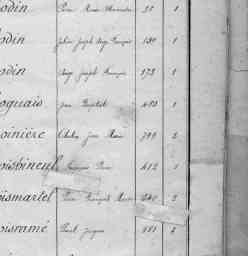 odin Pierre René Alexandre 51 1
odin Julien Joseph Ange François 150 1
odin Ange Joseph François 173 1
oguais Jean Baptiste 403 1
oinière Charles Jean Marie 799 2
oisbineul François Pierre 412 1
oismartel Pierre François Marie 240 2
oisramé Paul Jacques 551 2